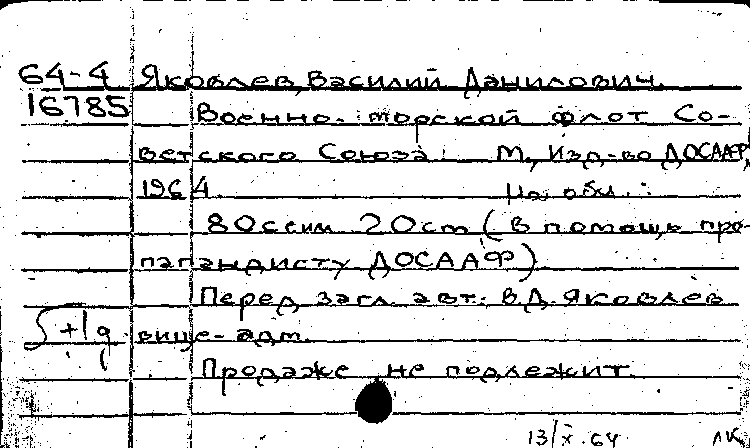 64-4 Яковлев, Василий Данилович.
16785 Военно-морской флот Со-
ветского Союза. М., Изд-во ДОСААФ,
1964. На обл.:
80 с с ил. 20 см (В помощь про-
пагандисту ДОСААФ)
Перед загл. авт.: В.Д. Яковлев
вице-адм.
Продаже не подлежит.
13/X.64 ЛК